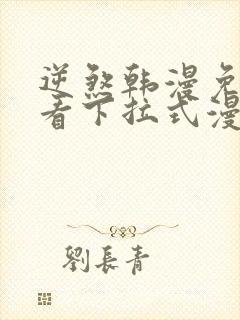 逆煞韩漫免
看下拉式漫
劉長青